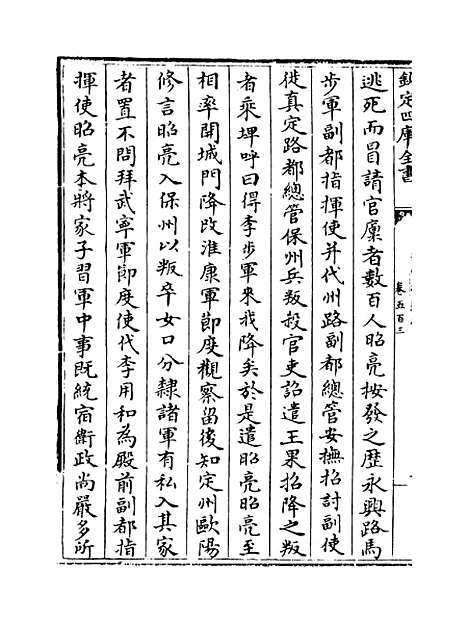 欽定四庫全書
卷五百三
逃死而冒請官廩者數百人昭亮按發之歷永興路馬
步軍副都指揮使并代州路副都總管安撫招討副使
徙真定路都總管保州兵叛殺官吏詔遣王果招降之叛
者乘埤呼曰得李步軍來我降矣於是遣昭亮昭亮至
相率開城門降改淮康軍節度觀察留後知定州歐陽
修言昭亮入保州以叛卒女口分隸諸軍有私入其家
者置不問拜武寧軍節度使代李用和為殿前副都指
揮使昭亮本將家子習軍中事既統宿衛政尚嚴多所